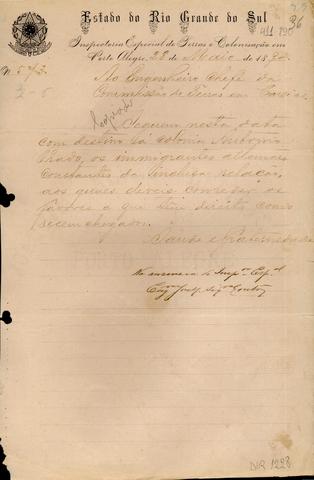 Estado do Rio Grande do Sul
36
Inspectoria Especial de Terras e Colonisação em
Porto Alegre, 28 de Maio de 189
N. 543
Ao Engenheiro Chefe da
Commissão de Terras em
Seguem nesta data
com destino á colonia
os immigrantes allemães
constantes da inclusa relação,
aos quaes deveis conceder os
favores a que têm direito como
recemchegados.
Saude e Fraternidade
Na ausencia do Insp.or Esp.al
DIR 1228